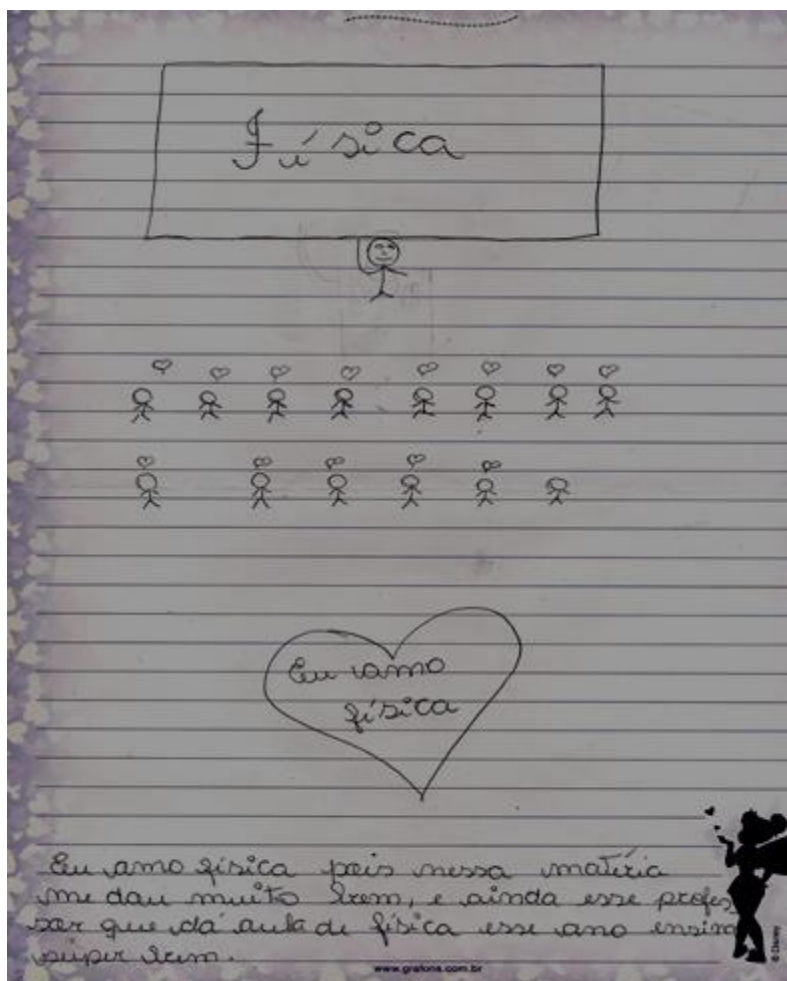 Física
Eu amo
física
Eu amo física pois nessa matéria
me dou muito bem, e ainda esse profes
sor que dá aula de física esse ano ensin
súper bem.
www.grafons.com.br
© Disney